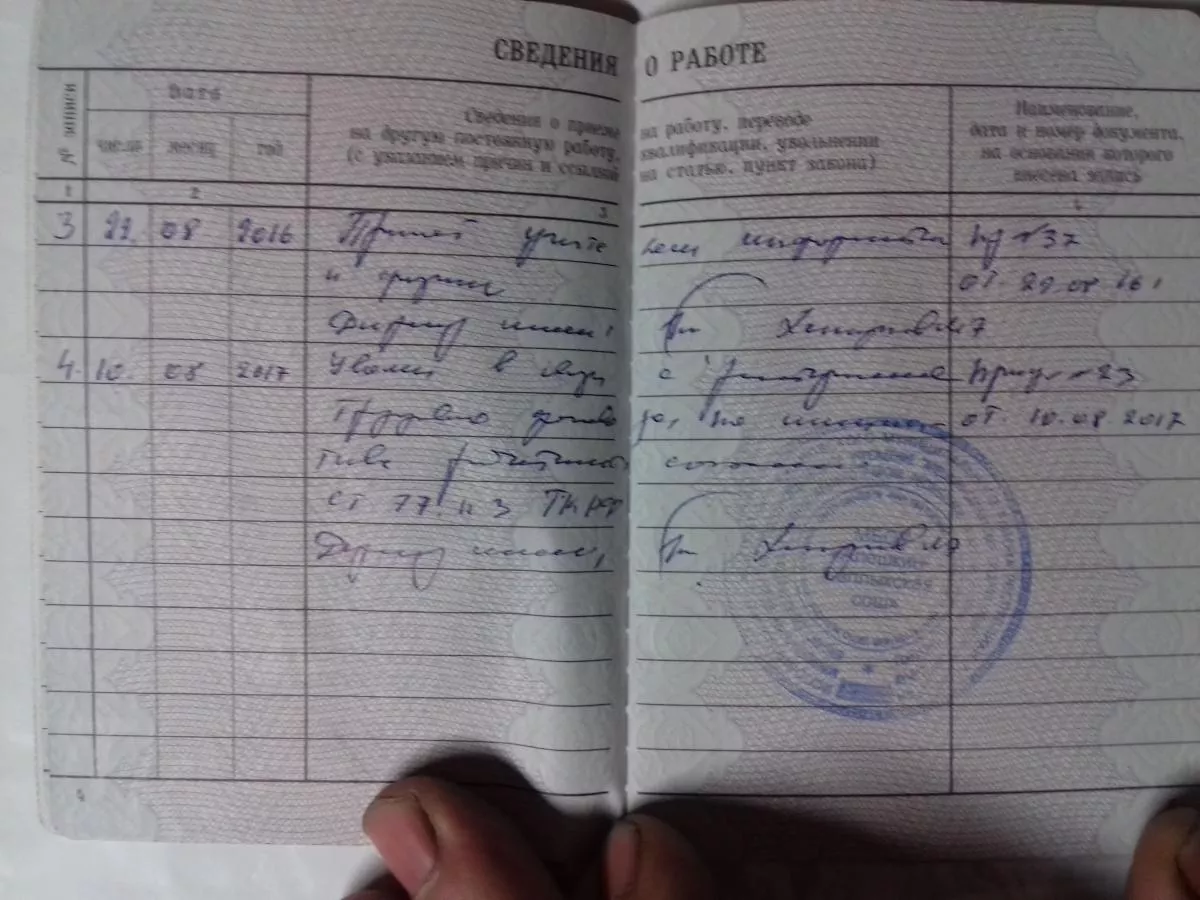 СВЕДЕНИЯ О РАБОТЕ
№ записи
Дата
число месяц год
Сведения о приеме на работу, переводе
на другую постоянную работу, квалификации, увольнении
(с указанием причин и ссылкой на статью, пункт закона)
Наименование,
дата и номер документа,
на основании которого
внесена запись
1 2 3 4
3 22 08 2016 Принят учителем информатики Пр №37
и физики от 22.08.16
Директор школы
4. 10. 08 2017 Уволен в связи с расторжением Приказ №23
Трудового договора, по от 10.08.2017
ст 77 п 3 ТК РФ
Директор школы
СОША
4